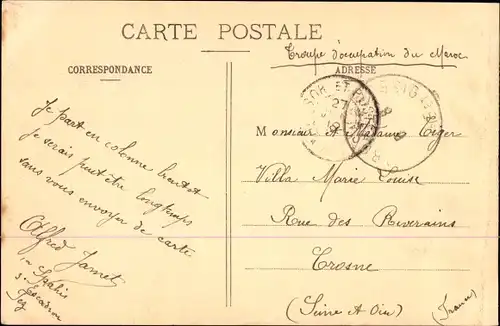 CARTE POSTALE
Troupe d'occupation du Maroc
CORRESPONDANCE
ADRESSE
Je part en colonne bientot
je serais peut être longtemps
sans vous envoyer de carte
Alfred Jamet
Spahis
Escadron
Fez
Monsieur et Madame Tiger
Villa Marie Louise
Rue des Riverains
Crosne
(Seine et Oise)
(France)